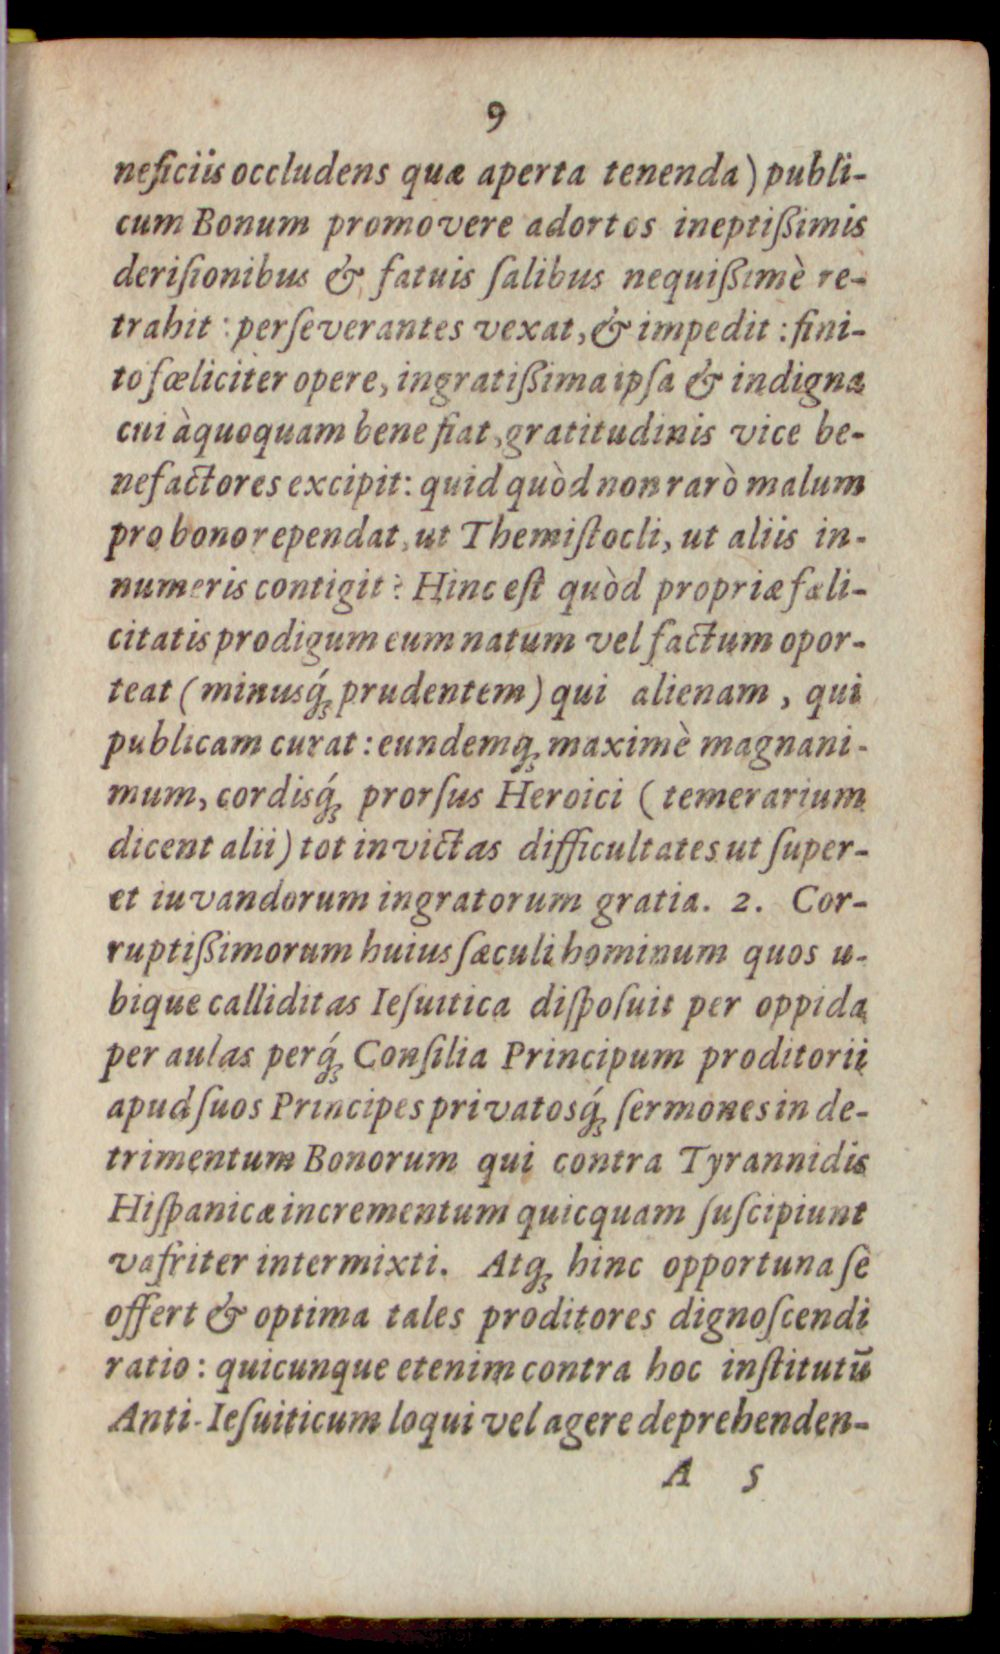 9
neficiis occludens quæ aperta tenenda) publi-
cum Bonum promovere adortos ineptißimis
deriſionibus & fatuis ſalibus nequißimè re-
trahit: perſeverantes vexat, & impedit: fini-
to fœliciter opere, ingratißima ipſa & indigna
cui àquoquam bene fiat, gratitudinis vice be-
nefactores excipit: quid quòd non rarò malum
pro bono rependat, ut Themiſtocli, ut aliis in-
numeris contigit? Hinc eſt quòd propriæ fæli-
citatis prodigum eum natum vel factum opor-
teat (minusq́ꝫ prudentem) qui alienam, qui
publicam curat: eundemqꝫ maximè magnani-
mum, cordisq́ꝫ prorſus Heroici (temerarium
dicent alii) tot invictas difficultates ut ſuper-
et iuvandorum ingratorum gratia. 2. Cor-
ruptißimorum huius ſæculi hominum quos u-
bique calliditas Ieſuitica diſpoſuit per oppida
per aulas perq́ꝫ Conſilia Principum proditorii
apud ſuos Principes privatosq́ꝫ ſermones in de-
trimentum Bonorum qui contra Tyrannidis
Hiſpanicæ incrementum quicquam ſuſcipiunt
vafriter intermixti. Atqꝫ hinc opportuna ſe
offert & optima tales proditores dignoſcendi
ratio: quicunque etenim contra hoc inſtitutū
Anti-Ieſuiticum loqui vel agere deprehenden-
A 5